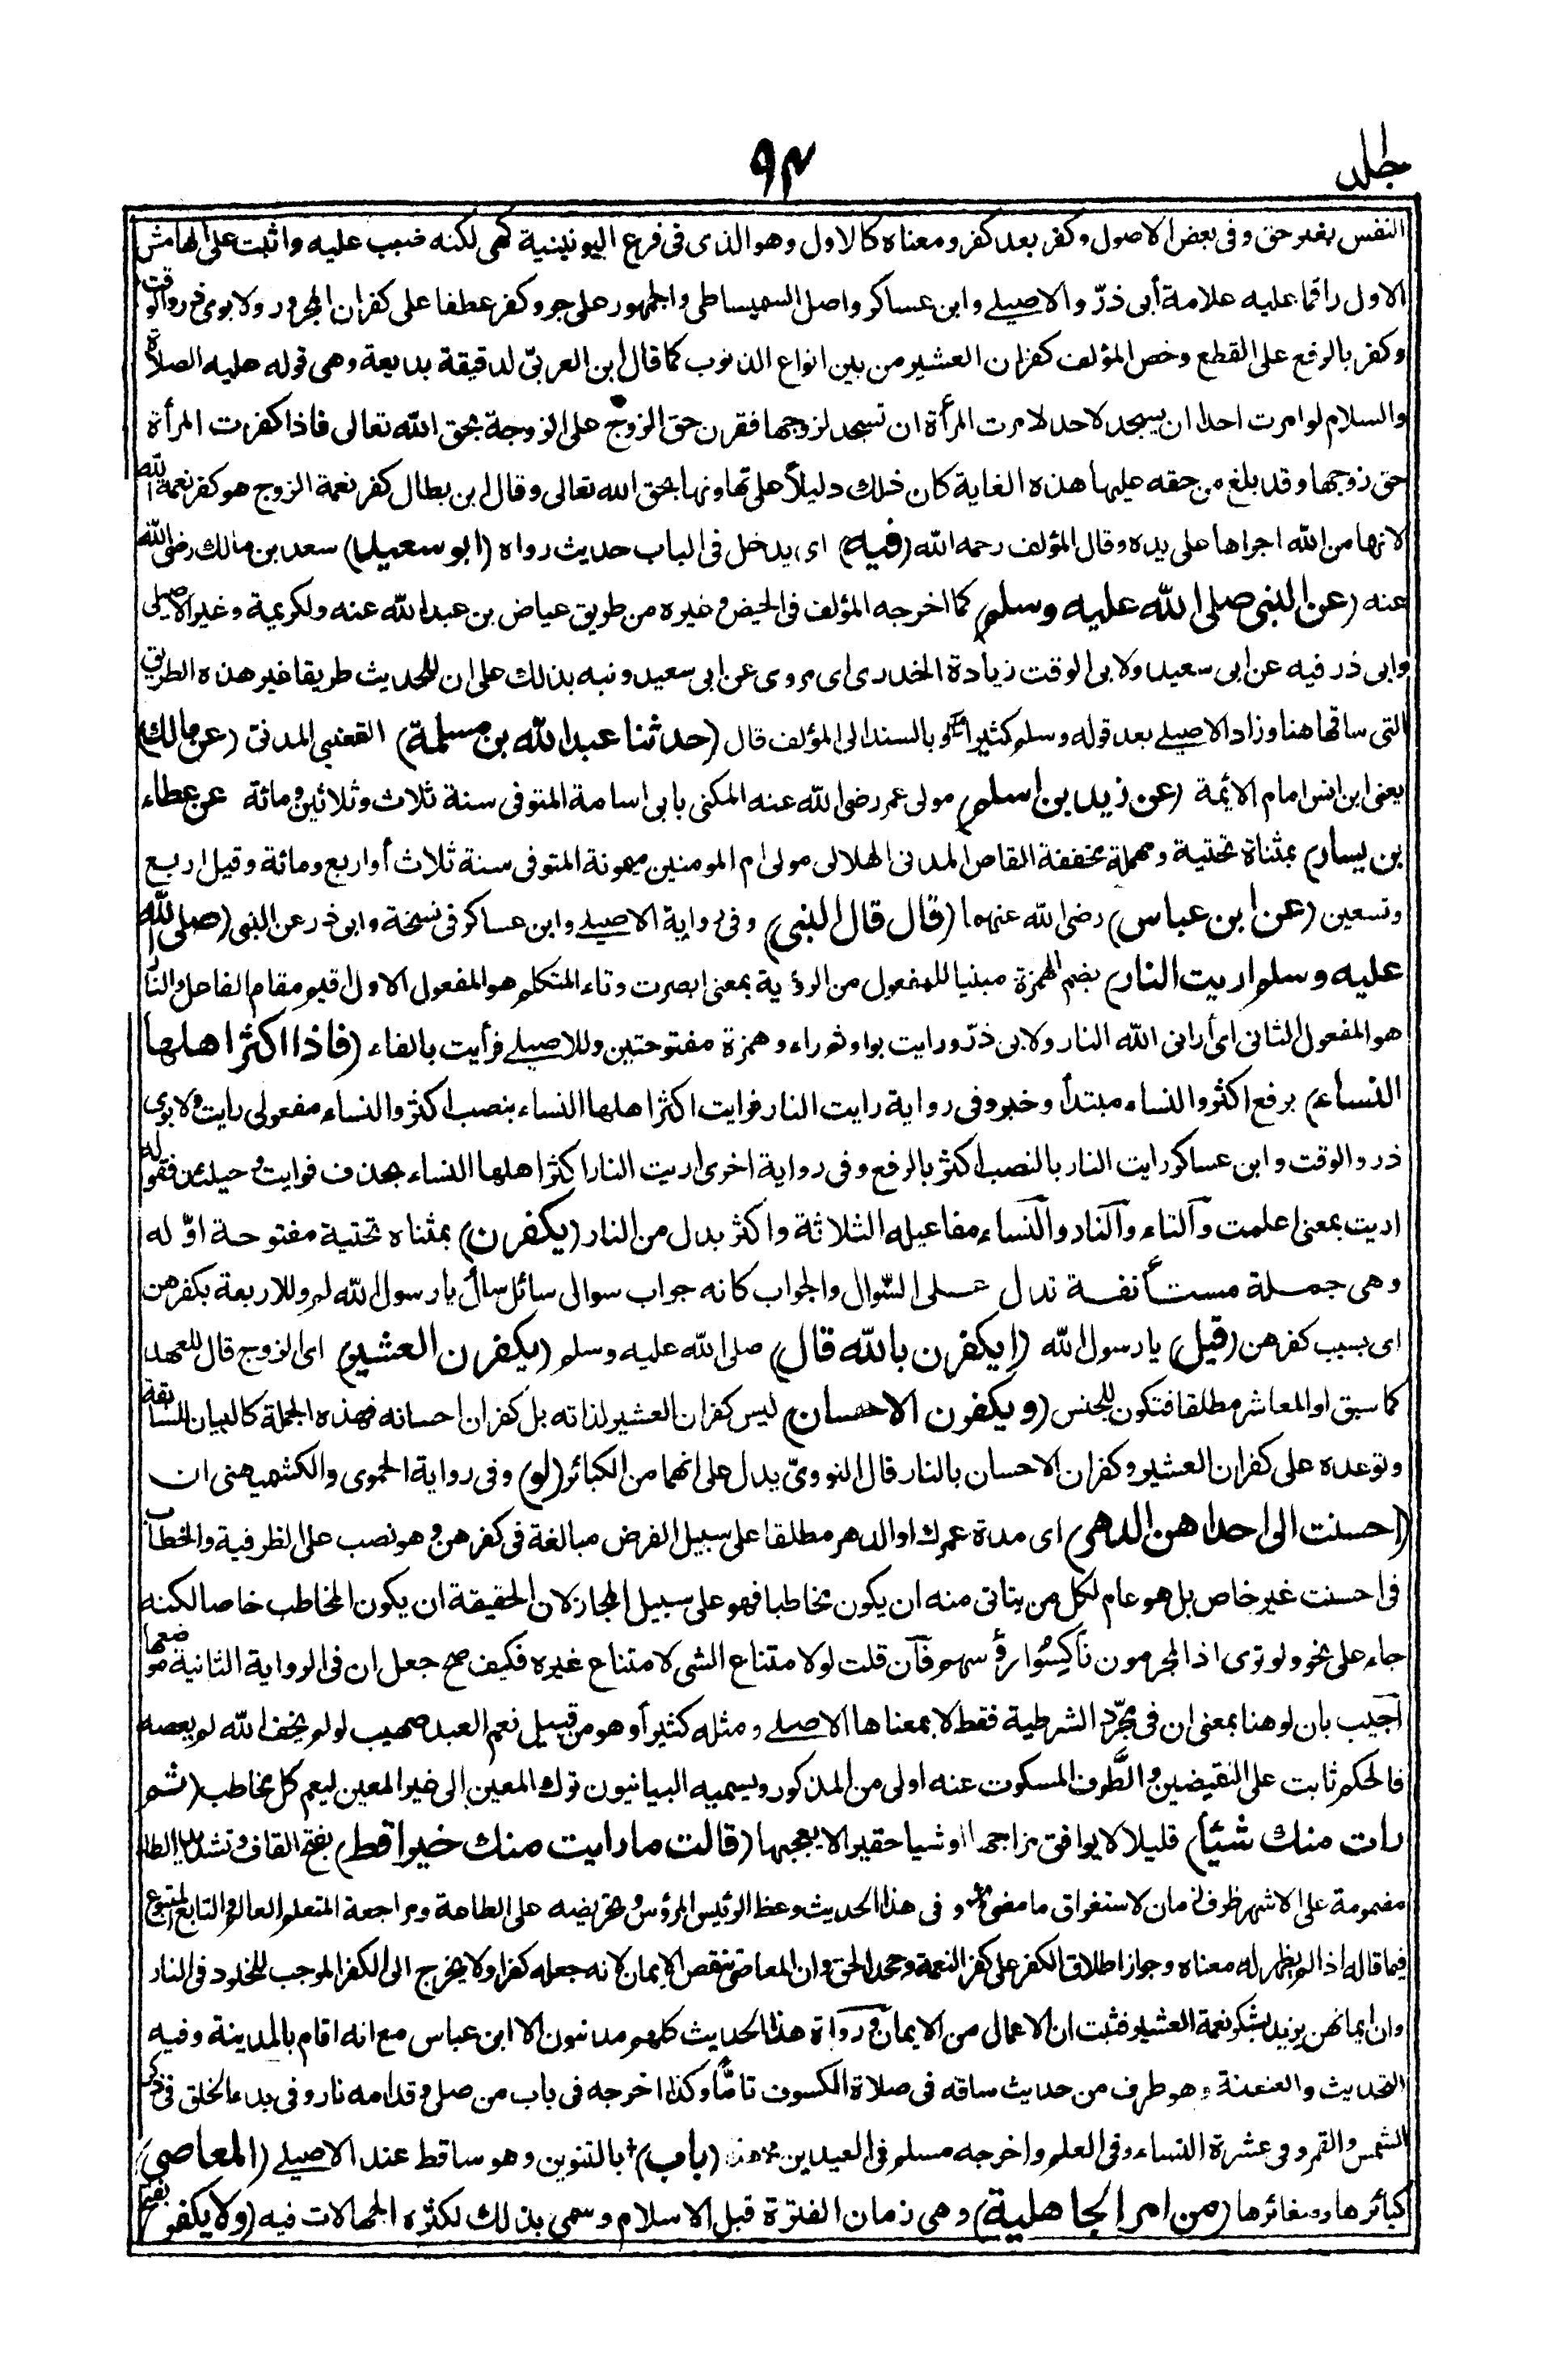 جلد
٩٣
النفس بغير حق وفى بعض الاصول وكفر بعد كفر ومعناه كالاول وهو الذى فى فرع اليونينية كهى لكنه ضبب عليه واثبت على الهامش
الاول راقما عليه علامة أبى ذرّ والاصيلے وابن عساكر واصل السميساطى والجمهور على جر وكفر عطفا على كفران المجرور ولابوى ذر والوقت
وكفر بالرفع على القطع وخص المؤلف كفران العشير من بين انواع الذنوب كما قال ابن العربىّ لدقيقة بديعة وهى قوله عليه الصلاة
والسلام لو امرت احدا ان يسجد لاحد لامرت المرأة ان تسجد لزوجها فقرن حق الزوج على الزوجة بحق الله تعالى فاذا كفرت المرأة
حق زوجها وقد بلغ من حقه عليها هذه الغاية كان ذلك دليلاً على تهاونها بحق الله تعالى وقال ابن بطال كفر نعمة الزوج هو كفر نعمة الله
لانها من الله اجراها على يده وقال المؤلف رحمه الله (فيه) اى يدخل فى الباب حديث رواه (ابو سعيد) سعد بن مالك رضى الله
عنه (عن النبى صلى الله عليه وسلم) كما اخرجه المؤلف فى الحيض وغيره من طريق عياض بن عبد الله عنه ولكريمة وغير الاصيلى
وابى ذر فيه عن ابى سعيد ولابى الوقت زيادة الخدرى اى مروى عن ابى سعيد ونبه بذلك على ان للحديث طريقا غير هذه الطريق
التى ساقها هنا وزاد الاصيلے بعد قوله وسلم كثيرا وبالسند الى المؤلف قال (حدثنا عبد الله بن مسلمة) القعنبى المدنىّ (عن مالك)
يعنى ابن انس امام الائمة (عن زيد بن اسلم) مولى عمر رضى الله عنه المكنى بابى اسامة المتوفى سنة ثلاث وثلاثين ومائة عن عطاء
بن يسار) بمثناة تحتية ومهملة مخففة القاص المدنى الهلالى مولى ام المومنين ميمونة المتوفى سنة ثلاث أو اربع ومائة وقيل اربع
وتسعين (عن ابن عباس) رضى الله عنهما (قال قال النبى) وفى رواية الاصيلے وابن عساكر فى نسخة وابى ذر عن النبى (صلى الله
عليه وسلم اريت النار) بضم الهمزة مبنيا للمفعول من الرؤية بمعنى ابصرت وتاء المتكلم هو المفعول الاول اقيم مقام الفاعل والنار
هو المفعول الثانى اى أرانى الله النار ولابى ذرّ ورايت بواو ثم راء وهمزة مفتوحتين وللاصيلے فرأيت بالفاء (فاذا اكثر اهلها
النساء) برفع اكثر والنساء مبتدأ وخبر وفى رواية رايت النار فرايت اكثر اهلها النساء بنصب اكثر والنساء مفعولى رايت ولابوى
ذر والوقت وابن عساكر رايت النار بالنصب اكثر بالرفع وفى رواية اخرى اريت النار اكثر اهلها النساء بحذف فرايت وحينئذ فقوله
اريت بمعنى اعلمت والتاء والنار والنساء مفاعيله الثلاثة واكثر بدل من النار (يكفرن) بمثناه تحتية مفتوحة اوّله
وهى جملة مستأنفة تدل على السّوال والجواب كانه جواب سوال سائل سأل يا رسول الله لم وللاربعة بكفرهن
اى بسبب كفرهن (قيل) يا رسول الله (ايكفرن بالله قال) صلى الله عليه وسلم (يكفرن العشير) اى الزوج قال للعهد
كما سبق او المعاشر مطلقا فتكون للجنس (ويكفرن الاحسان) ليس كفران العشير لذاته بل كفران احسانه فهذه الجملة كالبيان للسابقة
وتوعده على كفران العشير وكفران الاحسان بالنار قال النووىّ يدل على انهما من الكبائر (لو) وفى رواية الحموى والكشميهنى ان
(احسنت الى احداهن الدهر) اى مدة عمرك او الدهر مطلقا على سبيل الفرض مبالغة فى كفرهن وهو نصب على الظرفية والخطاب
فى احسنت غير خاص بل هو عام لكل من يتاتى منه ان يكون مخاطبا فهو على سبيل المجاز لان الحقيقة ان يكون المخاطب خاصا لكنه
جاء على نحو ولو ترى اذ المجرمون نَاكِسُوا رؤسهم فآن قلت لو لامتناع الشى لامتناع غيره فكيف صح جعل ان فى الرواية الثانية موضعها
اجيب بان لو هنا بمعنى ان فى مجرّد الشرطية فقط لا بمعناها الاصلے ومثله كثير أو هو من قبيل نعم العبد صهيب لو لم يخف الله لم يعصه
فالحكم ثابت على النقيضين والطَّرف المسكوت عنه اولى من المذكور ويسميه البيانيون ترك المعين الى غير المعين ليعم كل مخاطب (ثم
رات منك شئًا) قليلا لا يوافق مزاجها او شيا حقيرا لا يعجبها (قالت ما رايت منك خيرا قط) بفتح القاف وتشديد الطاء
مضمومة على الاشهر ظرف زمان لاستغراق ما مضى وفى هذا الحديث وعظ الرئيس المرؤس وتحريضه على الطاعة ومراجعة المتعلم العالم والتابع المتبوع
فيما قاله اذا لم يظهر له معناه وجواز اطلاق الكفر على كفر النعمة وجحد الحق وان المعاصى تنقص الايمان لانه جعله كفرا ولا يخرج الى الكفر الموجب للخلود فى النار
وان ايمانهن يزيد بشكر نعمة العشير فثبت ان الاعمال من الايمان ورواة هذا الحديث كلهم مدنيون الا ابن عباس مع انه اقام بالمدينة وفيه
التحديث والعنعنة وهو طرف من حديث ساقه فى صلاة الكسوف تامًّا وكذا اخرجه فى باب من صلى وقدامه نار وفى بدء الخلق فى ذكر
الشمس والقمر وفى عشرة النساء وفى العلم واخرجه مسلم فى العيدين (باب) بالتنوين وهو ساقط عند الاصيلے (المعاصى)
كبائرها وصغائرها (من امر الجاهلية) وهى زمان الفترة قبل الاسلام وسمى بذلك لكثرة الجهالات فيه (ولا يكفر) بفتح